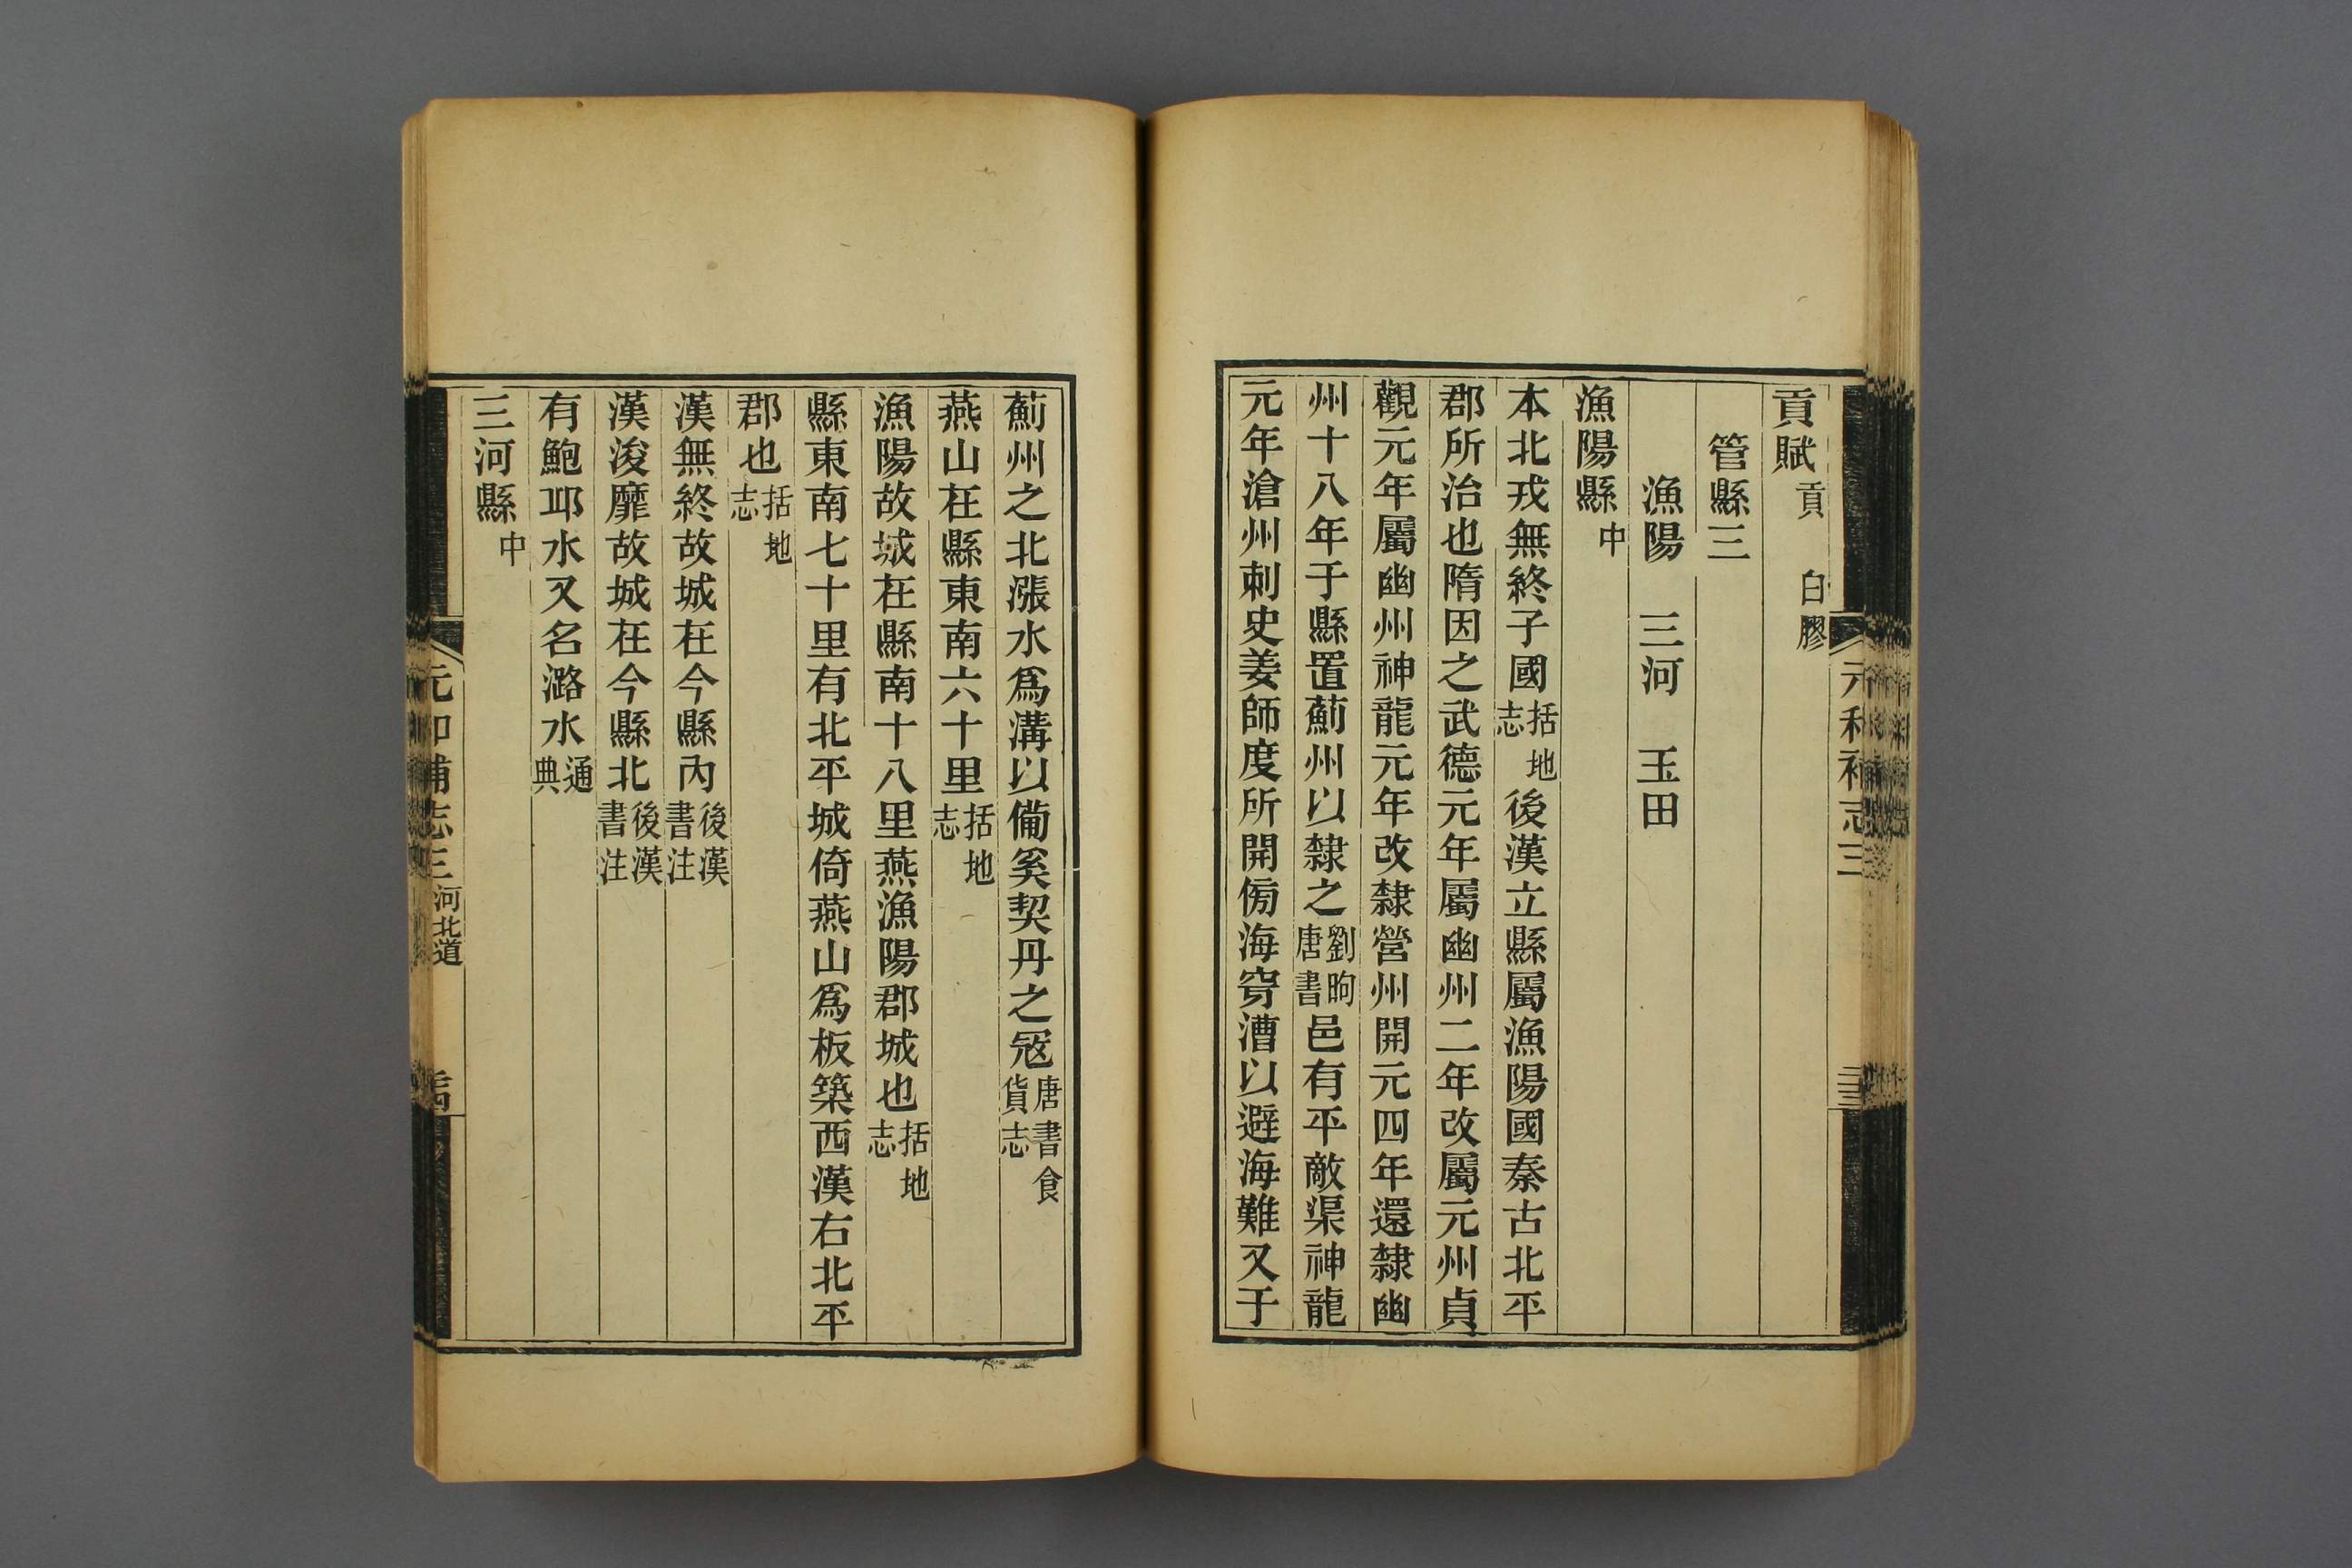 貢賦貢　白膠
管縣三
漁陽　三河　玉田
漁陽縣中
本北戎無終子國括地志後漢立縣屬漁陽國秦古北平
郡所治也隋因之武德元年屬幽州二年改屬元州貞
觀元年屬幽州神龍元年改隸營州開元四年還隸幽
州十八年于縣置薊州以隸之劉昫唐書邑有平敵渠神龍
元年滄州刺史姜師度所開傍海穿漕以避海難又于
薊州之北漲水爲溝以備奚契丹之寇唐書食貨志
燕山在縣東南六十里括地志
漁陽故城在縣南十八里燕漁陽郡城也括地志
縣東南七十里有北平城倚燕山爲板築西漢右北平
郡也括地志
漢無終故城在今縣內後漢書注
漢浚靡故城在今縣北後漢書注
有鮑邱水又名潞水通典
三河縣中
元和補志三河北道